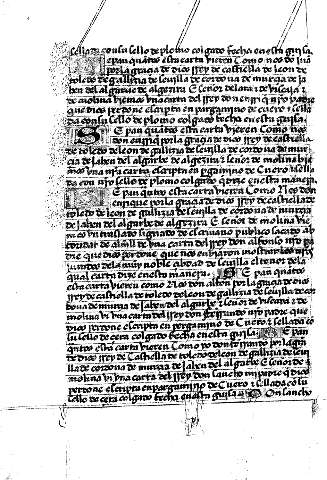 sellada con su sello de plomo colgado fecha en esta guisa
Sepan quantos esta carta vieren Como nos don Iua
por la graçia de dios Rey de castiella de leon de
toledo de gallizia de seuilla de cordoua de murçia de Ja
hen del algarue de algezira E señor de lara τ de vizcaya τ
de molina viemos vna carta del Rey don enrriq nro padre
que dios perdone escripta en pargamino de cuero τ sella
da con su sello de plomo colgado fecha en esta guisa
Sepan quantos esta carta vieren Como nos
don enrriq por la graçia de dios Rey de castiella de
toledo de leon de gallizia de seuilla de cordoua de mur
çia de Jahen del algarbe de algezira τ señor de molina vie
mos vna nra carta escripta en pargamino de Cuero τ sella
da con nro sello de plomo colgado q dize en esta manera
Sepan quantos esta carta vieren Como Nos don
enrrique por la graçia de dios Rey de castiella de
toledo de leon de gallizia de seuilla de cordoua de murçia
de Jahen del algarbe de algezira τ señor de molina vie
mos vn traslado signado de escriuano publico sacado ab
de vna carta del Rey don alfonso nro pa
dre que dios perdone que nos enbiaron mostrar los nros
de la muy noble çibdad de seuilla el tenor de la
qual carta dize en esta manera Sepan quantos
esta carta vieren Como Nos don alfon por la graçia de dios
Rey de castiella de toledo de leon de gallizia de seuilla de cor
doua de murçia de Jahen del algarbe τ señor de vizcaya τ de
molina vi vna carta del Rey don ferrando nro padre que
dios perdone escripta en pergamino de Cuero τ sellada co
su sello de çera colgado fecha en esta guisa Sepan
quantos esta carta vieren Como yo don ferrando por la gra
de dios Rey de Castiella de toledo de leon de gallizia de seui
lla de cordoua de murçia de Jahen del algarbe E señor de
molina vi vna carta del Rey don sancho mi padre q dios
perdone escripta en pargamino de Cuero τ sellada co su
sello de çera colgado fecha en esta guisa Don sancho